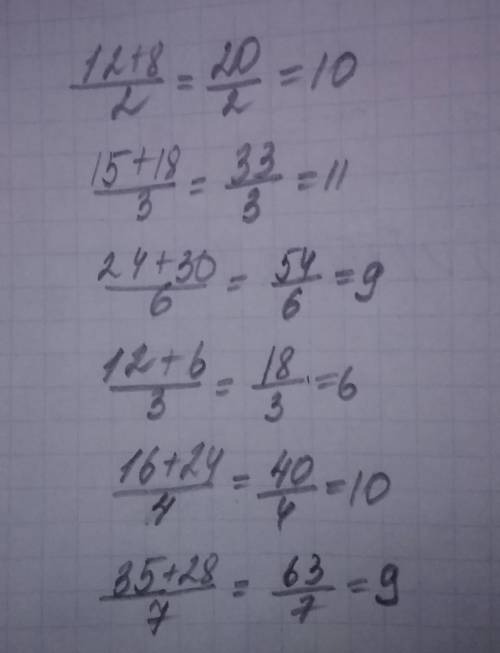 12+8/2 = 20/2 = 10
15+18/3 = 33/3 = 11
24+30/6 = 54/6 = 9
12+6/3 = 18/3 = 6
16+24/4 = 40/4 = 10
35+28/7 = 63/7 = 9